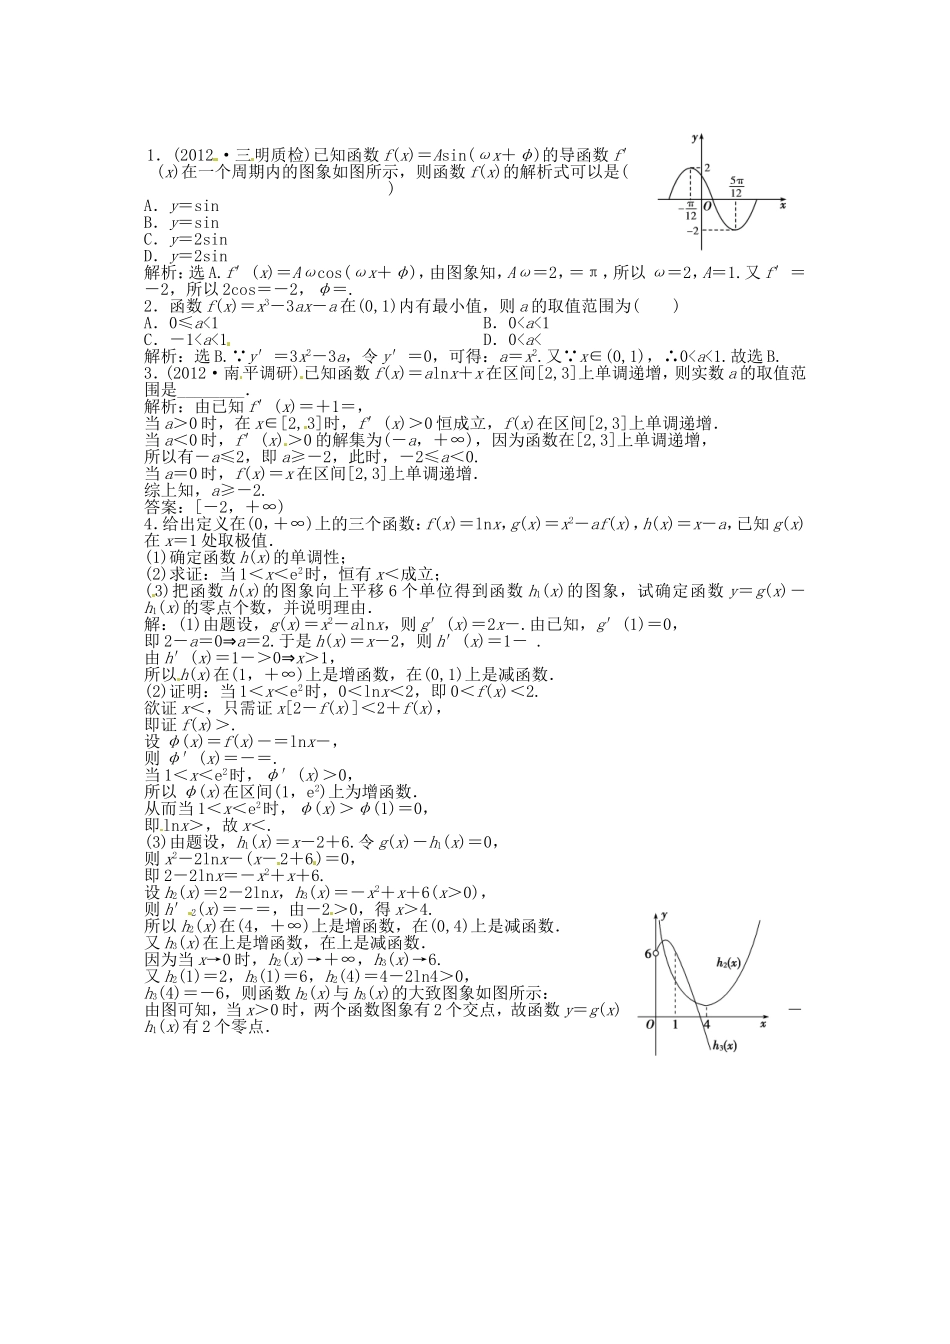 1．(2012·三明质检)已知函数 f(x)＝Asin(ωx＋φ)的导函数 f′
(x)在一个周期内的图象如图所示，则函数 f(x)的解析式可以是(
)
A．y＝sin
B．y＝sin
C．y＝2sin
D．y＝2sin
y
2
5π
12
－π
12
O
x
－2
解析：选 A.f′(x)＝Aωcos(ωx＋φ)，由图象知，Aω＝2，＝π，所以 ω＝2，A＝1.又 f′＝
－2，所以 2cos＝－2，φ＝.
2．函数 f(x)＝x³－3ax－a 在(0,1)内有最小值，则 a 的取值范围为(　　)
A．0≤a<1　　B．0<a<1
C．－1<a<1　　D．0<a<
解析：选 B.∵y′＝3x²－3a，令 y′＝0，可得：a＝x².又∵x∈(0,1)，∴0<a<1.故选 B.
3．(2012·南平调研)已知函数 f(x)＝alnx＋x 在区间[2,3]上单调递增，则实数 a 的取值范
围是________．
解析：由已知 f′(x)＝＋1＝，
当 a＞0 时，在 x∈[2,3]时，f′(x)＞0 恒成立，f(x)在区间[2,3]上单调递增．
当 a＜0 时，f′(x)＞0 的解集为(－a，＋∞)，因为函数在[2,3]上单调递增，
所以有－a≤2，即 a≥－2，此时，－2≤a＜0.
当 a＝0 时，f(x)＝x 在区间[2,3]上单调递增．
综上知，a≥－2.
答案：[－2，＋∞)
4.给出定义在(0，＋∞)上的三个函数：f(x)＝lnx，g(x)＝x²－af(x)，h(x)＝x－a，已知 g(x)
在 x＝1 处取极值．
(1)确定函数 h(x)的单调性；
(2)求证：当 1＜x＜e²时，恒有 x＜成立；
(3)把函数 h(x)的图象向上平移 6 个单位得到函数 h₁(x)的图象，试确定函数 y＝g(x)－
h₁(x)的零点个数，并说明理由．
解：(1)由题设，g(x)＝x²－alnx，则 g′(x)＝2x－.由已知，g′(1)＝0，
即 2－a＝0⇒a＝2.于是 h(x)＝x－2，则 h′(x)＝1－ .
由 h′(x)＝1－＞0⇒x＞1，
所以 h(x)在(1，＋∞)上是增函数，在(0,1)上是减函数．
(2)证明：当 1＜x＜e²时，0＜lnx＜2，即 0＜f(x)＜2.
欲证 x＜，只需证 x[2－f(x)]＜2＋f(x)，
即证 f(x)＞.
设 φ(x)＝f(x)－＝lnx－，
则 φ′(x)＝－＝.
当 1＜x＜e²时，φ′(x)＞0，
所以 φ(x)在区间(1，e²)上为增函数．
从而当 1＜x＜e²时，φ(x)＞φ(1)＝0，
即 lnx＞，故 x＜.
(3)由题设，h₁(x)＝x－2＋6.令 g(x)－h₁(x)＝0，
则 x²－2lnx－(x－2＋6)＝0，
即 2－2lnx＝－x²＋x＋6.
设 h₂(x)＝2－2lnx，h₃(x)＝－x²＋x＋6(x＞0)，
则 h′₂(x)＝－＝，由－2＞0，得 x＞4.
所以 h₂(x)在(4，＋∞)上是增函数，在(0,4)上是减函数．
又 h₃(x)在上是增函数，在上是减函数．
因为当 x→0 时，h₂(x)→＋∞，h₃(x)→6.
又 h₂(1)＝2，h₃(1)＝6，h₂(4)＝4－2ln4＞0，
h₃(4)＝－6，则函数 h₂(x)与 h₃(x)的大致图象如图所示：
由图可知，当 x＞0 时，两个函数图象有 2 个交点，故函数 y＝g(x)－
h₁(x)有 2 个零点．
y
6
h₂(x)
O 1 4 x
h₃(x)